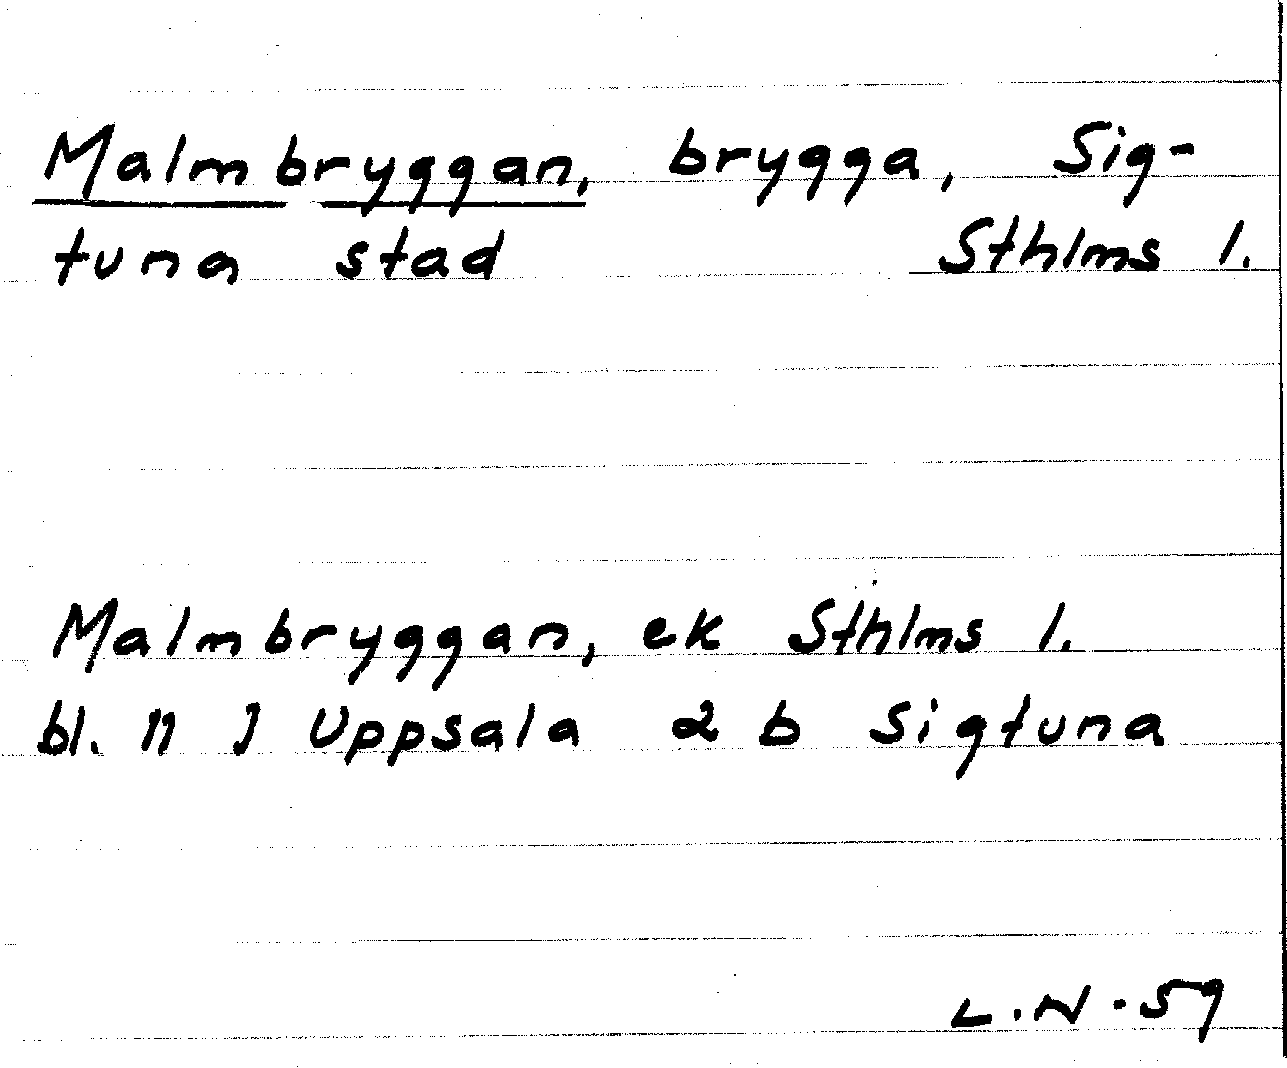 Malmbryggan, brygga, Sig-
tuna stad Sthlms l.
Malmbryggan, ek Sthlms l.
bl. 11 I Uppsala 2 b Sigtuna
L.N.-59